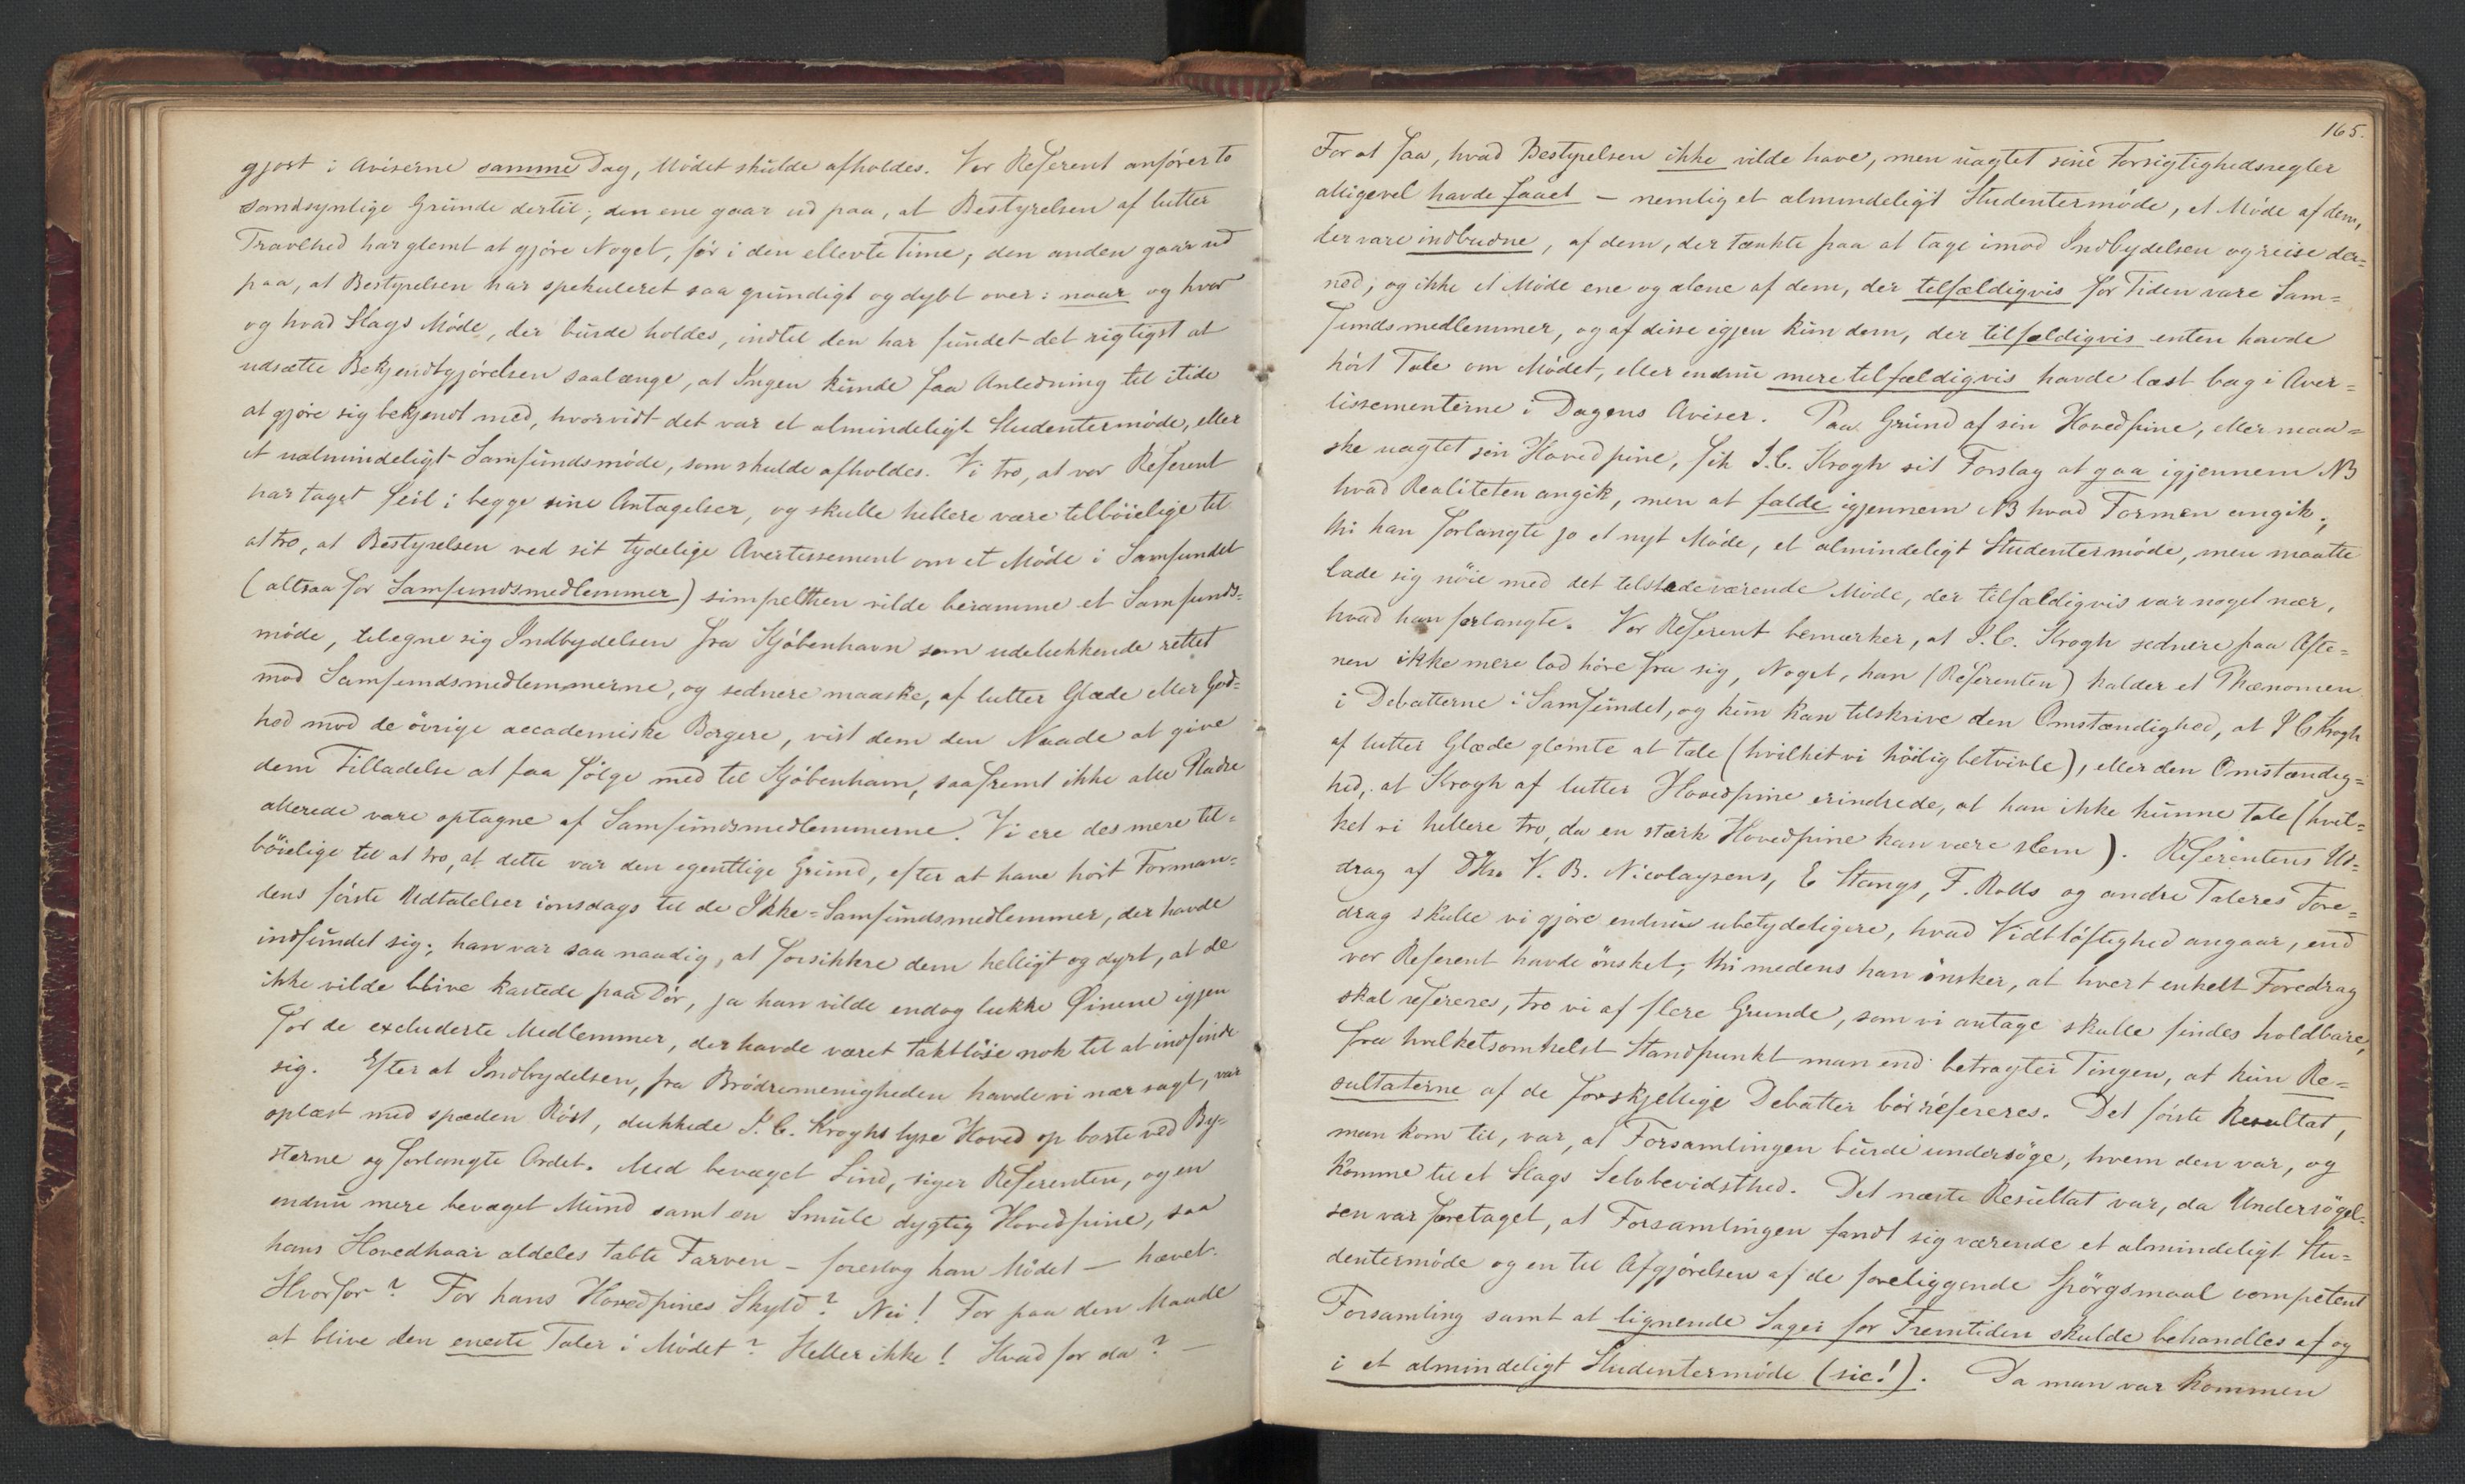 gjort i Aviserne samme Dag, Mödet skulde afholdes. Vor Referent anförer to
sandsynlige Grunde dertil; den ene gaar ud paa, at Bestyrelsen af lutter
Travlhed har glemt at gjöre Noget, för i den ellevte Time; den anden gaar ud
paa, at Bestyrelsen har spekuleret saa grundigt og dybt over: naar og hvor
og hvad Slags Möde, der burde holdes, indtil den har fundet det rigtigst at
udsætte Bekjendtgjörelsen saalænge, at Ingen kunde faa Anledning til itide
at gjöre sig bekjendt med, hvorvidt det var et almindeligt Studentermöde, eller
et ualmindeligt Samfundsmöde, som skulde afholdes. Vi tro, at vor Referent
har taget feil i begge sine Antagelser, og skulle hellere være tilböielige til
at tro, at Bestyrelsen ved sit tydelige Avertissement om et Möde i Samfundet
(altsaa for Samfundsmedlemmer) simpelthen vilde beramme et Samfunds-
möde, tilegne sig Indbydelsen fra Kjöbenhavn som udelukkende rettet
mod Samfundsmedlemmerne, og sednere maaske, af lutter Glæde eller God-
hed mod de övrige accademiske Borgere, vist dem den Naade at give
dem Tilladelse at faa fölge med til Kjöbenhavn, saafremt ikke alle Pladse
allerede vare optagne af Samfundsmedlemmerne. Vi ere des mere til-
böielige til at tro, at dette var den egentlige Grund, efter at have hört Forman-
dens förste Udtalelser ionsdags til de Ikke-Samfundsmedlemmer, der havde
indfundet sig; han var saa naadig, at forsikkre dem helligt og dyrt, at de
ikke vilde blive kastede paa Dör, ja han vilde endog lukke Öinene igjen
for de excluderte Medlemmer, der havde været taktlöse nok til at indfinde
sig. Efter at Indbydelsen, fra Brödremenigheden havde vi nær sagt, var
oplæst med spæden Röst, dukkede J. C. Kroghs lyse Hoved op borte ved By-
sterne og forlangte Ordet. Med bevæget Sind, siger Referenten, og en
endnu mere bevæget Mund samt en Smule dygtig Hovedpine, saa
hans Hovedhaar aldeles tabte Farven – foreslog han Mödet – hævet.
Hvorfor? For hans Hovedpines Skyld? Nei! For paa den Maade
at blive den eneste Taler i Mödet? Heller ikke! Hvad for da? –
165.
For at faa, hvad Bestyrelsen ikke vilde have, men uagtet sine Forsigtighedsregler
alligevel havde faaet – nemlig et almindeligt Studentermöde, et Möde af dem,
der vare indbudne, af dem, der tænkte paa at tage imod Indbydelsen og reise der-
ned; og ikke et Möde ene og alene af dem, der tilfældigvis for Tiden vare Sam-
fundsmedlemmer, og af disse igjen kun dem, der tilfældigvis enten havde
hört Tale om Mödet, eller endnu mere tilfældigvis havde læst bag i Aver-
tissementerne i Dagens Aviser. Paa Grund af sin Hovedpine, eller maa-
ske uagtet sin Hovedpine, fik J. C. Krogh sit Forslag at gaa igjennem NB
hvad Realiteten angik, men at falde igjennem NB hvad Formen angik;
thi han forlangte jo et nyt Möde, et almindeligt Studentermöde, men maatte
lade sig nöie med det tilstedeværende Möde, der tilfældigvis var noget nær,
hvad han forlangte. Vor Referent bemærker, at J. C. Krogh sednere paa Afte-
nen ikke mere lod höre fra sig, Noget, han (Referenten) kalder et Phænomen
i Debatterne i Samfundet, og kun kan tilskrive den Omstændighed, at J C Krogh
af lutter Glæde glemte at tale (hvilket vi höilig betvivle), eller den Omstændig-
hed, at Krogh af lutter Hovedpine erindrede, at han ikke kunne tale (hvil-
ket vi hellere tro, da en stærk Hovedpine kan være slem). Referentens Ud-
drag af DHrr. V. B. Nicolaysens, E Stangs, F. Rolls og andre Taleres Fore-
drag skulle vi gjöre endnu ubetydeligere, hvad Vidtlöftighed angaar, end
vor Referent havde önsket; thi medens han önsker, at hvert enkelt Foredrag
skal refereres, tro vi af flere Grunde, som vi antage skulle findes holdbare,
fra hvilketsomhelst Standpunkt man end betragter Tingen, at kun Re-
sultaterne af de forskjellige Debatter bör refereres. Det förste Resultat,
man kom til, var, at Forsamlingen burde undersöge, hvem den var, og
komme til et Slags Selvbevidsthed. Det næste Resultat var, da Undersögel-
sen var foretaget, at Forsamlingen fandt sig værende et almindeligt Stu-
dentermöde og en til Afgjörelsen af de foreliggende Spörgsmaal competent
Forsamling samt at lignende Sager for Fremtiden skulde behandles af og
i et almindeligt Studentermöde (sic!). Da man var kommen